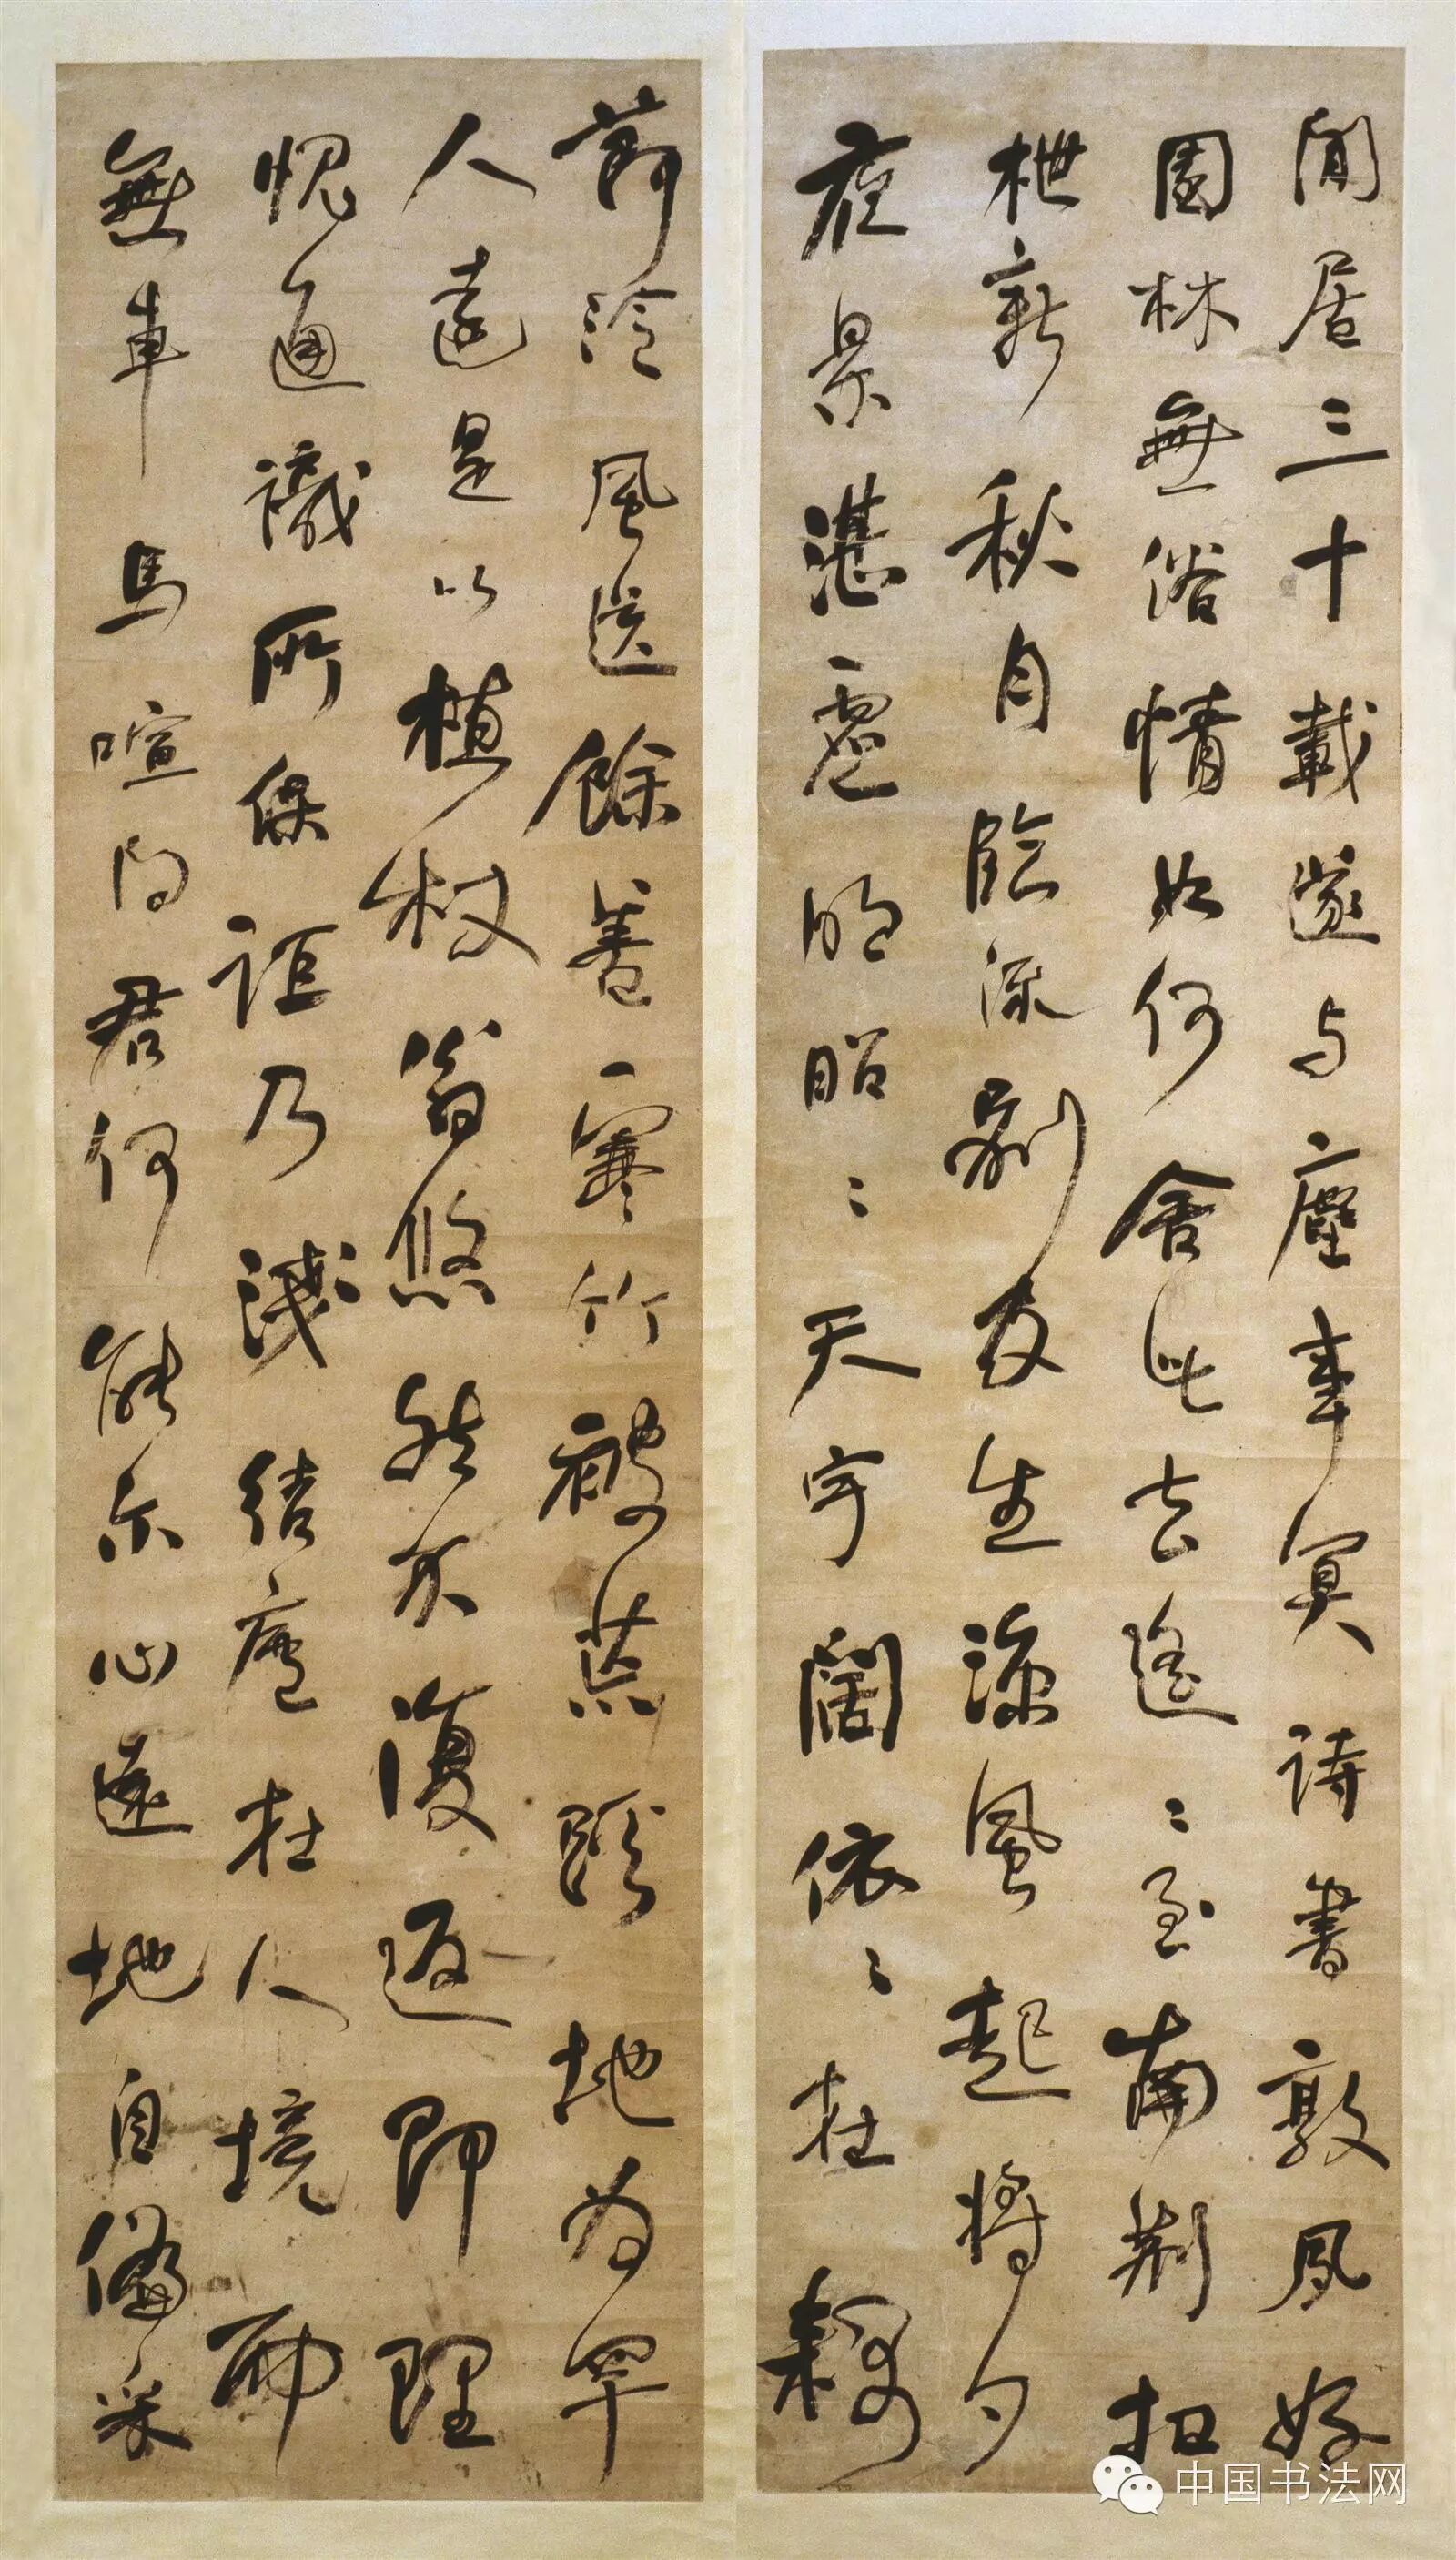 閒居三十載遂与塵事冥詩書敦夙好
園林無俗情如何舍此去遙〻至南荊扣
枻新秋月臨流別友生涼風起將夕
夜景湛虛明昭〻天宇闊依〻在耦
節泠風送餘善寒竹被荒蹊地為罕
人遠是以植杖翁悠然不復返即理
愧通識所保詎乃淺結廬在人境而
無車馬喧問君何能尔心遠地自偏采
中国书法网